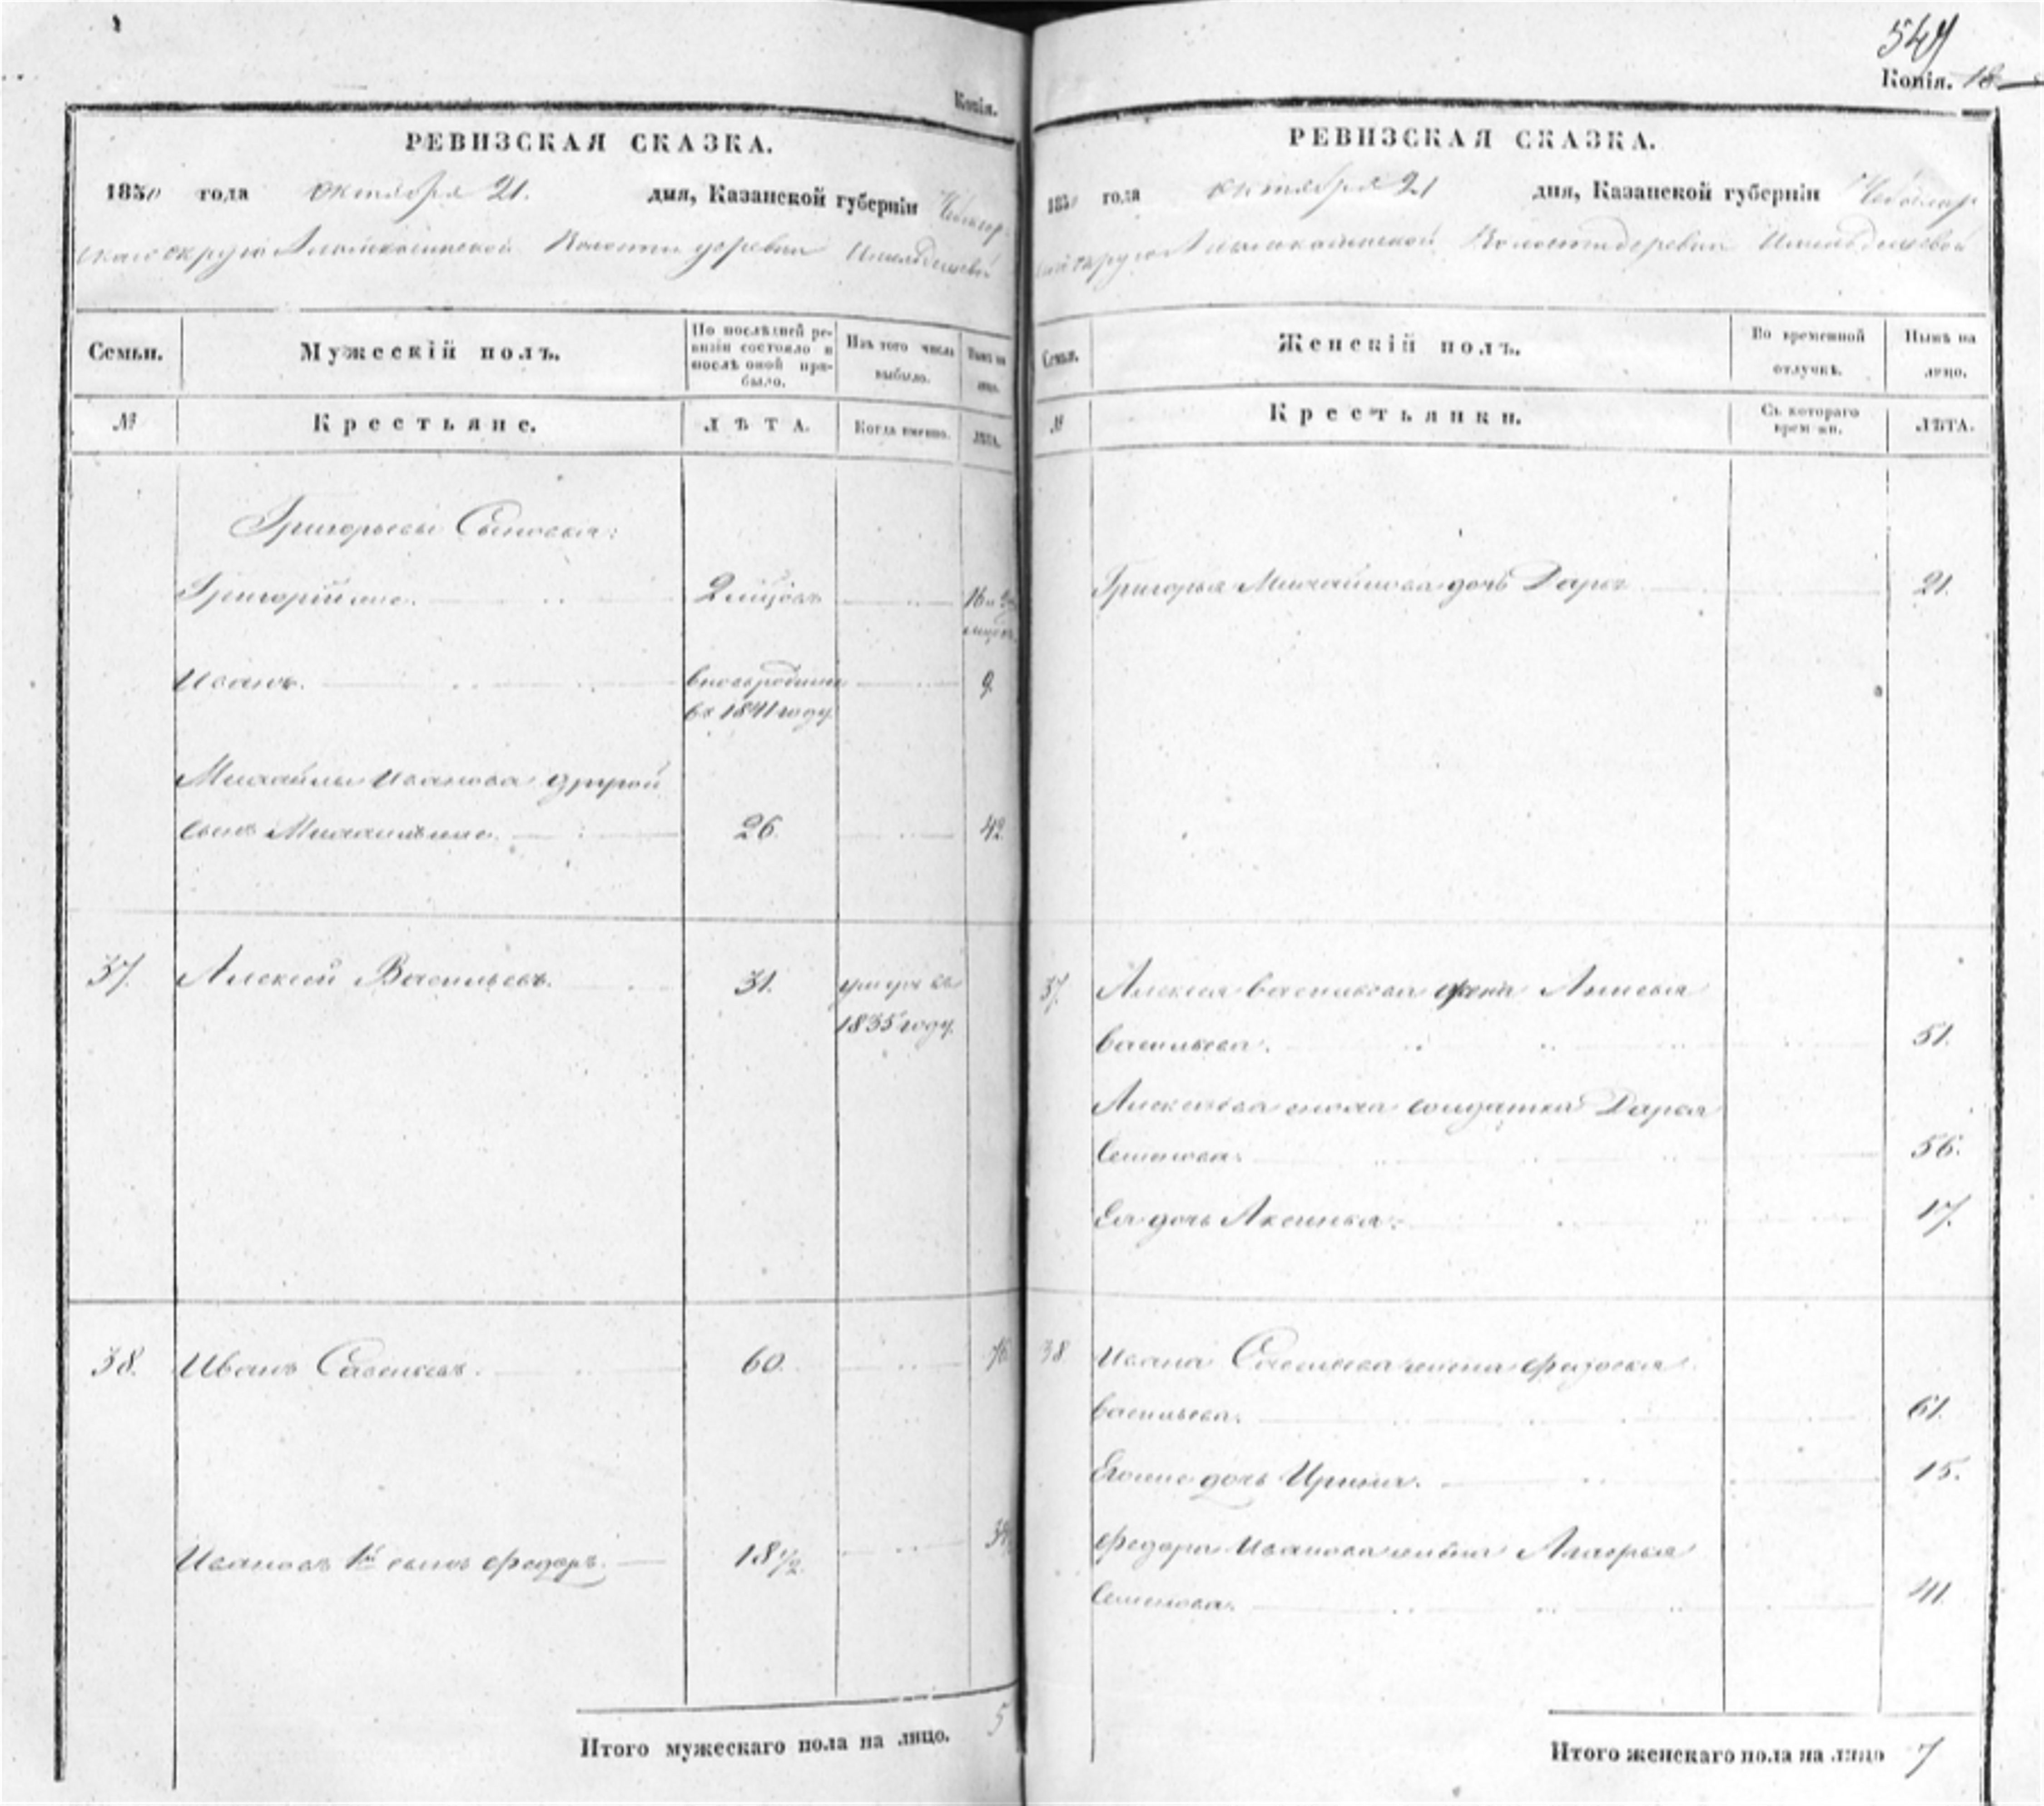 Копія.
РЕВИЗСКАЯ СКАЗКА.
1850 года октября 21. дня, Казанской губерніи Чебоксар-
скаго округа волости деревни
Семьи. Мужескій полъ. По послѣдней ре-
визіи состояло и
послѣ оной при-
было. Изъ того числа
выбыло. Нынѣ на
лицо.
№ Крестьяне. ЛѢТА. Когда именно. ЛѢТА.
Григорьевы Сыновья:
Григорій 2 16
Иванъ. вновь рожденъ 9.
въ 1841 году.
Михайлы Иванова другой
сынъ 26. 42.
37. Алексей Васильевъ. 31. умеръ въ
1835 году.
38. Иванъ Савельевъ. 60. 76.
Ивановъ 1й сынъ Федоръ. 18 1/2.
Итого мужескаго пола на лицо. 5
549
Копія. 18
РЕВИЗСКАЯ СКАЗКА.
1850 года октября 21 дня, Казанской губерніи Чебоксар
округа волости деревни
Семьи. Женскій полъ. Во временной
отлучкѣ. Нынѣ на
лицо.
№ Крестьянки. Съ котораго
времени. ЛѢТА.
Григорья Михайлова дочь Дарья 21.
37. Алексея Васильева жена
Васильева. 51.
Алексеева сноха солдатка Дарья
Семенова. 56.
Ея дочь Аксинья. 17.
38 Ивана Савельева жена Федосья
Васильева. 61.
дочь Ирина. 15.
Федора Иванова жена
Семенова. 41.
Итого женскаго пола на лицо 7